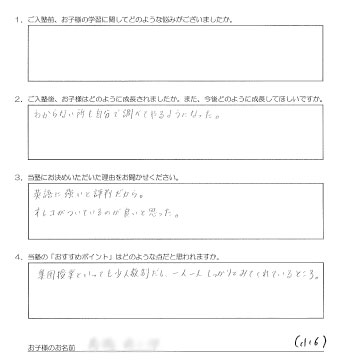 1．ご入塾前、お子様の学習に関してどのような悩みがございましたか。
2．ご入塾後、お子様はどのように成長されましたか。また、今後どのように成長してほしいですか。
わからない所も自分で調べてやるようになった。
3．当塾にお決めいただいた理由をお聞かせください。
英語に強いと評判だから。
オレコがついているのが良いと思った。
4．当塾の「おすすめポイント」はどのような点だと思われますか。
集団授業といっても少人数制だし、一人一人しっかりみてくれているところ。
お子様のお名前 (小6)